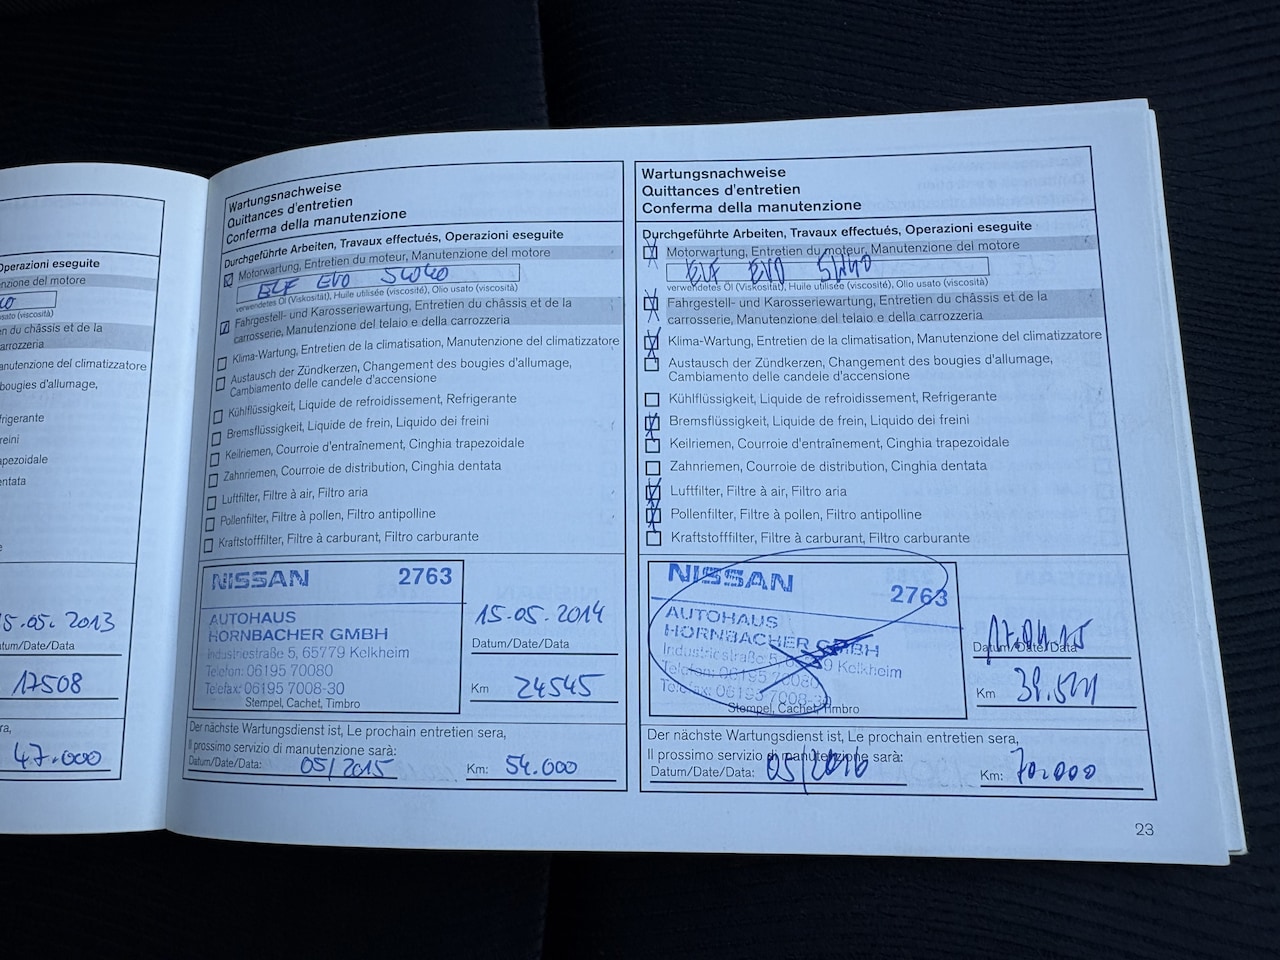 Operazioni eseguite
nzione del motore
sato (viscosità)
en du châssis et de la
carrozzeria
anutenzione del climatizzatore
bougies d'allumage,
frigerante
reini
apezoidale
entata
e
15.05.2013
Datum/Date/Data
17508
ra,
47.000
Wartungsnachweise
Quittances d'entretien
Conferma della manutenzione
Durchgeführte Arbeiten, Travaux effectués, Operazioni eseguite
Motorwartung, Entretien du moteur, Manutenzione del motore
ELF EVO 5W40
verwendetes Öl (Viskosität), Huile utilisée (viscosité), Olio usato (viscosità)
Fahrgestell- und Karosseriewartung, Entretien du châssis et de la
carrosserie, Manutenzione del telaio e della carrozzeria
Klima-Wartung, Entretien de la climatisation, Manutenzione del climatizzatore
Austausch der Zündkerzen, Changement des bougies d'allumage,
Cambiamento delle candele d'accensione
Kühlflüssigkeit, Liquide de refroidissement, Refrigerante
Bremsflüssigkeit, Liquide de frein, Liquido dei freini
Keilriemen, Courroie d'entraînement, Cinghia trapezoidale
Zahnriemen, Courroie de distribution, Cinghia dentata
Luftfilter, Filtre à air, Filtro aria
Pollenfilter, Filtre à pollen, Filtro antipolline
Kraftstofffilter, Filtre à carburant, Filtro carburante
NISSAN 2763
AUTOHAUS
HORNBACHER GMBH
Industriestraße 5, 65779 Kelkheim
Telefon: 06195 70080
Telefax: 06195 7008-30
Stempel, Cachet, Timbro
15.05.2014
Datum/Date/Data
Km 24545
Der nächste Wartungsdienst ist, Le prochain entretien sera,
Il prossimo servizio di manutenzione sarà:
Datum/Date/Data: 05/2015 Km: 54.000
Wartungsnachweise
Quittances d'entretien
Conferma della manutenzione
Durchgeführte Arbeiten, Travaux effectués, Operazioni eseguite
Motorwartung, Entretien du moteur, Manutenzione del motore
ELF EVO 5W40
verwendetes Öl (Viskosität), Huile utilisée (viscosité), Olio usato (viscosità)
Fahrgestell- und Karosseriewartung, Entretien du châssis et de la
carrosserie, Manutenzione del telaio e della carrozzeria
Klima-Wartung, Entretien de la climatisation, Manutenzione del climatizzatore
Austausch der Zündkerzen, Changement des bougies d'allumage,
Cambiamento delle candele d'accensione
Kühlflüssigkeit, Liquide de refroidissement, Refrigerante
Bremsflüssigkeit, Liquide de frein, Liquido dei freini
Keilriemen, Courroie d'entraînement, Cinghia trapezoidale
Zahnriemen, Courroie de distribution, Cinghia dentata
Luftfilter, Filtre à air, Filtro aria
Pollenfilter, Filtre à pollen, Filtro antipolline
Kraftstofffilter, Filtre à carburant, Filtro carburante
NISSAN 2763
AUTOHAUS
HORNBACHER GMBH
Industriestraße 5, 65779 Kelkheim
Telefon: 06195 70080
Telefax: 06195 7008-30
Stempel, Cachet, Timbro
Datum/Date/Data
Km
Der nächste Wartungsdienst ist, Le prochain entretien sera,
Il prossimo servizio di manutenzione sarà:
Datum/Date/Data: 05/2016 Km: 70.000
23